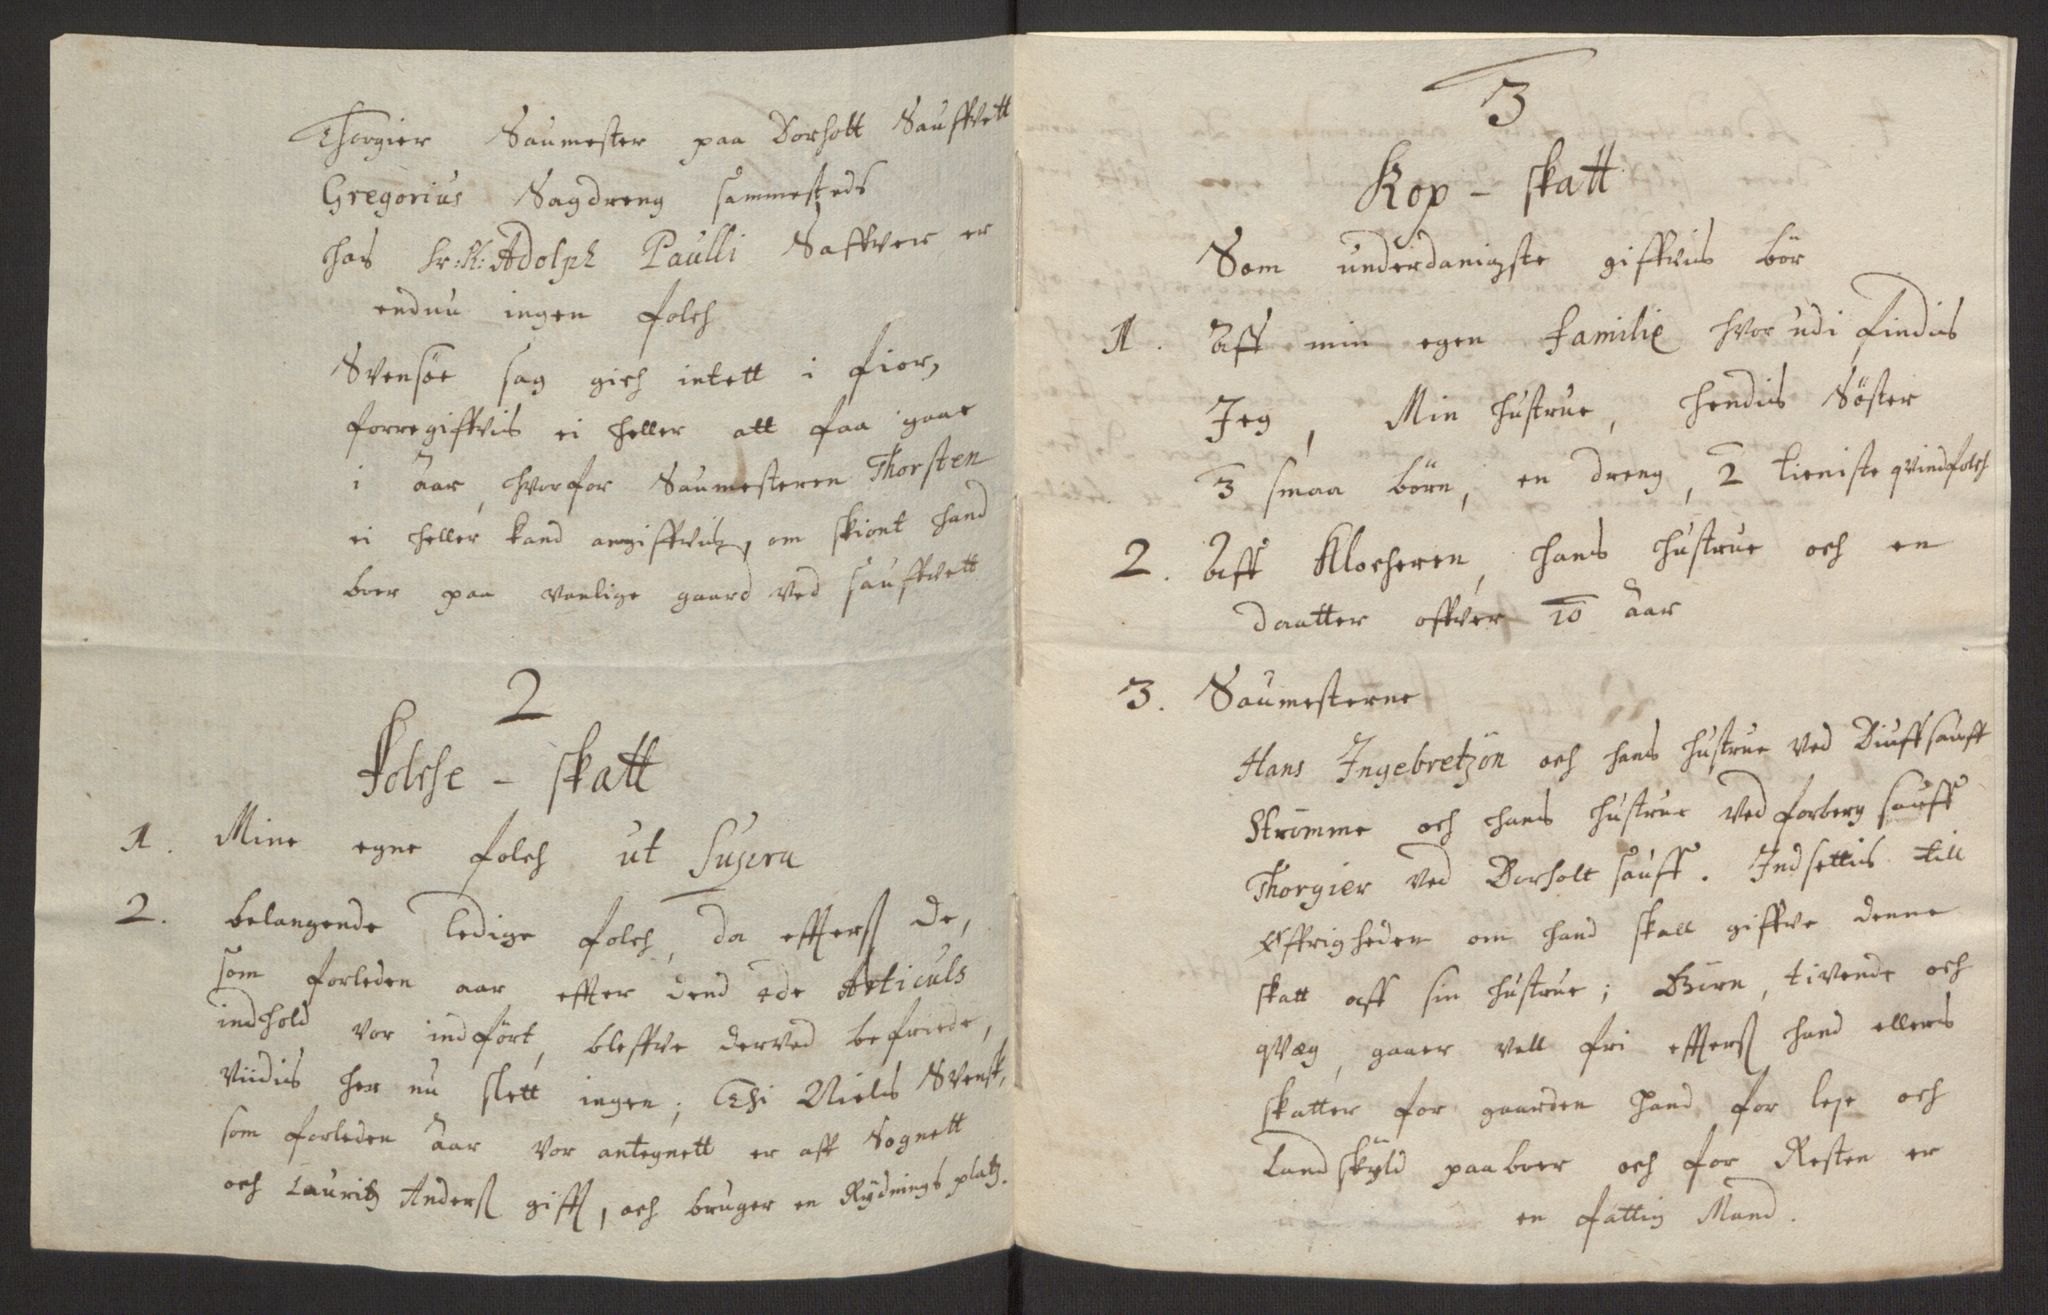 Thorgier Saumester paa Borholt Sauffvett
Gregorius Sagdreng sammesteds
hos Hr: K: Adolph Paulli Saffver er
endnu ingen folch
Svensøe sag gich intett i fior,
forregiffvis ei heller att faa gaae
i Aar, hvorfor Saumesteren Thorsten
ei heller kand angiffvis, om skiont hand
boer paa vonlige gaard ved Sauffvett
2
Folche - skatt
1. Mine egne folch ut Supra
2. belangende ledige folch, da efftersom de,
som forleden aar effter dend 2de Articuls
indhold vor indført, bleffve derved befriede,
viidis her nu slett ingen; Thi Niels Svensk,
som forleden Aar vor antegnett er aff Sognett
och Lauritz Anders gifft, och bruger en Rydnings platz.
3
Kop - skatt
Som underdanigste giffvis bör
1. Aff min egen Familie hvor udi findis
Jeg, Min hustrue, hendis Söster
3 smaa börn, en dreng, 2 tieniste qvindfolch
2. Aff Klocheren, hans hustrue och en
daatter offver 10 Aar
3. Saumesterne
Hans Ingebretzön och hans hustrue ved sauff
Strömme och hans hustrue ved forberg sauff
Thorgier ved Borholt sauff. Indsettis till
Øffrigheden om hand skall giffve denne
skatt aff sin hustrue; Börn, tiende och
qvæg, gaaer vell fri effterss hand ellers
skatter for gaarden hand for leje och
Landskyld paaboer och for Resten er
en fattig Mand.